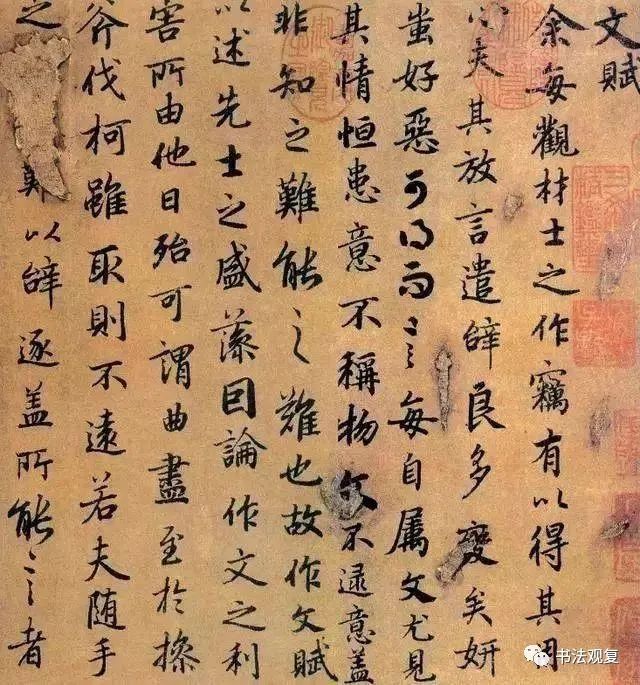 文賦
余每觀材士之作竊有以得其用
心夫其放言遣辤良多變矣妍
蚩好惡可得而言每自属文尤見
其情恒患意不稱物文不逮意盖
非知之難能之難也故作文賦
以述先士之盛藻因論作文之利
害所由他日殆可謂曲盡至於操
斧伐柯雖取則不遠若夫随手
之難以辤逐盖所能言者
书法观复